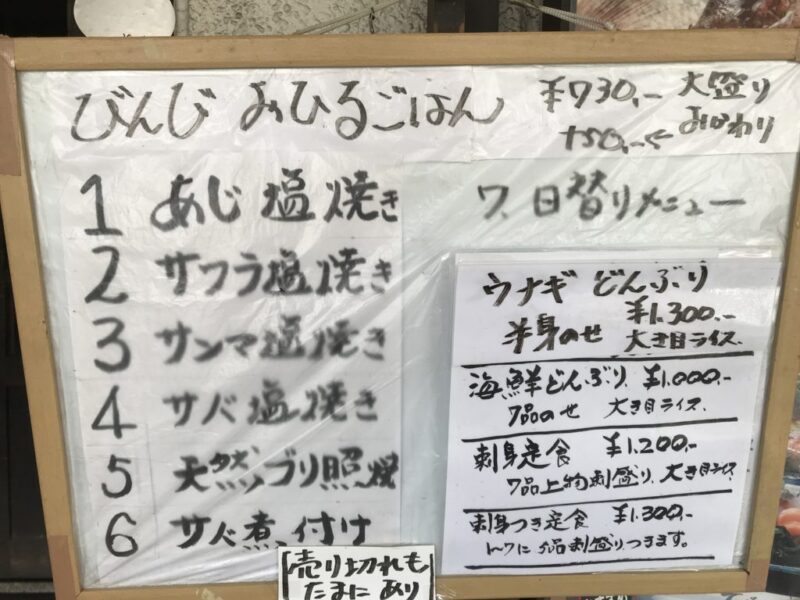 びんび おひるごはん
¥730,- 大盛り
+50,-← おかわり
1 あじ塩焼き
2 サワラ塩焼き
3 サンマ塩焼き
4 サバ塩焼き
5 天然ブリ照焼
6 サバ煮付け
7、日替りメニュー
ウナギどんぶり
¥1,300,-
半身のせ 大き目ライス、
海鮮どんぶり、¥1,000,-
7品のせ 大き目ライス、
刺身定食 ¥1,200,-
7品上物刺盛り、大き目ライス
刺身つき定食 ¥1,300,-
1〜7に 品刺盛りつきます。
売り切れも
たまに あり